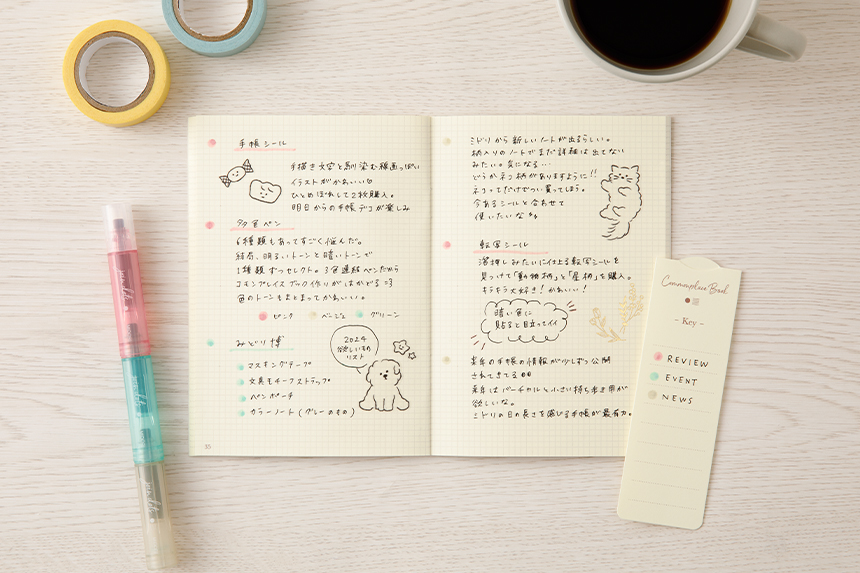 手帳シール
手描き文字と馴染む線画っぽい
イラストがかわいい♡
ひとめぼれして2枚購入。
明日からの手帳デコが楽しみ
多色ペン
6種類もあってすごく悩んだ。
結局、明るいトーンと暗いトーンで
1種類ずつセレクト。3色連結ペンだから
コモンプレイスブック作りがはかどる:3
色のトーンもまとまってかわいい。
ピンク ベージュ グリーン
みどり博
2024
欲しいもの
リスト
マスキングテープ
文具モチーフストラップ
ペンポーチ
カラーノート(グレーのもの)
35
ミドリから新しいノートが出るらしい。
柄入りのノートでまだ詳細は出てない
みたい。気になる…
どうかネコ柄がありますように!!
ネコってだけでぜったい買ってしまう。
今あるシールと合わせて
使いたいな
転写シール
箔押しみたいに仕上る転写シールを
見つけて「動物柄」と「星柄」を購入。
キラキラ大好き!かわいい!
暗い色に
貼ると目立ってイイ
来年の手帳の情報が少しずつ公開
されてきてる
来年はバーチカルと小さい持ち歩き用が
欲しいな。
ミドリの日の長さを感じる手帳が最有力。
Commonplace Book
- Key -
REVIEW
EVENT
NEWS